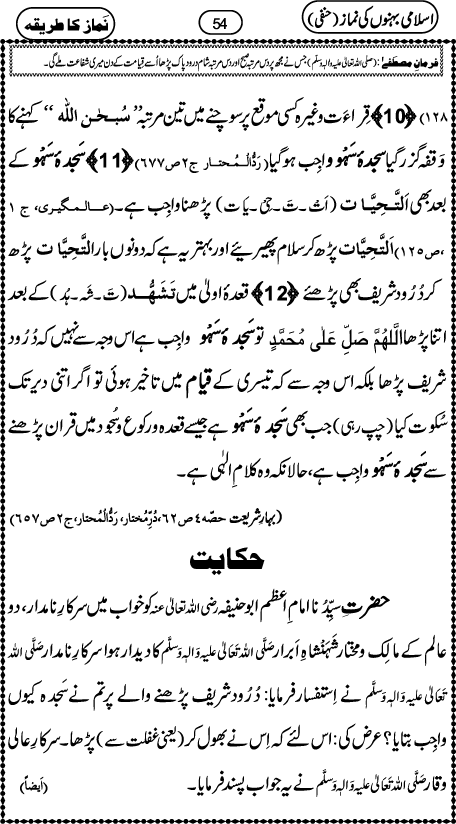 اسلامی بہنوں کی نماز (حنفی)
54
نَماز کا طریقه
فرمانِ مصطفےٰ: (صلی اللہ تعالیٰ علیہ والہ وسلم) جس نے مجھ پر دس مرتبہ صبح اور دس مرتبہ شام درود پاک پڑھا اُسے قیامت کے دن میری شفاعت ملے گی۔
۱۲۸) ﴿10﴾ قِراءَت وغیرہ کسی موقع پر سوچنے میں تین مرتبہ ’’ سُبحٰنَ اللہ ‘‘ کہنے کا
وَقفہ گزر گیا سجدۂ سَہْو واجب ہو گیا (رَدُّالْمُحتار ج۲ ص ۶۷۷) ﴿11﴾ سَجدۂ سَہْو کے
بعد بھی اَلتَّحِیَّات (اَتْ ۔ تَ ۔ حِیْ ۔ یَات) پڑھنا واجب ہے۔ (عالمگیری، ج ۱
،ص ۱۲۵) اَلتَّحِیَّات پڑھ کر سلام پھیرئیے اور بہتر یہ ہے کہ دونوں بار اَلتَّحِیَّات پڑھ
کر دُرُود شریف بھی پڑھئے ﴿12﴾ قعدۂ اُولیٰ میں تَشَہُّد (تَ ۔ شَہْ ۔ ہُد) کے بعد
اتنا پڑھا اَللّٰھُمَّ صَلِّ عَلٰی مُحَمَّدٍ تو سَجدۂ سَہْو واجب ہے اس وجہ سے نہیں کہ دُرُود
شریف پڑھا بلکہ اس وجہ سے کہ تیسری کے قِیام میں تاخیر ہوئی تو اگر اتنی دیر تک
سُکُوت کیا (چپ رہی) جب بھی سَجدۂ سَہْو ہے جیسے قعدہ و رُکوع و سُجود میں قراٰن پڑھنے
سے سَجدۂ سَہْو واجب ہے، حالانکہ وہ کلامِ الٰہی ہے۔
(بہارِ شریعت حصّہ ۴ ص ۶۲، دُرِّمُختار، رَدُّالْمُحتار، ج ۲ ص ۶۵۷)
حکایت
حضرتِ سیِّدُنا امامِ اعظم ابو حنیفہ رضی اللہ تعالیٰ عنہ کو خواب میں سرکارِ نامدار، دو
عالم کے مالِک و مختار شَہَنْشاہِ اَبرار صَلَّی اللہ تَعَالٰی علیہ والہٖ وَسلَّم کا دیدار ہوا سرکارِ نامدار صَلَّی اللہ
تعَالٰی علیہ والہٖ وَسلَّم نے اِستفسار فرمایا: دُرُود شریف پڑھنے والے پر تم نے سَجدہ کیوں
واجب بتایا؟ عرض کی: اس لئے کہ اِس نے بھول کر (یعنی غفلت سے) پڑھا۔ سرکارِ عالی
وقار صَلَّی اللہ تَعَالٰی علیہ والہٖ وَسلَّم نے یہ جواب پسند فرمایا۔ (اَیضاً)